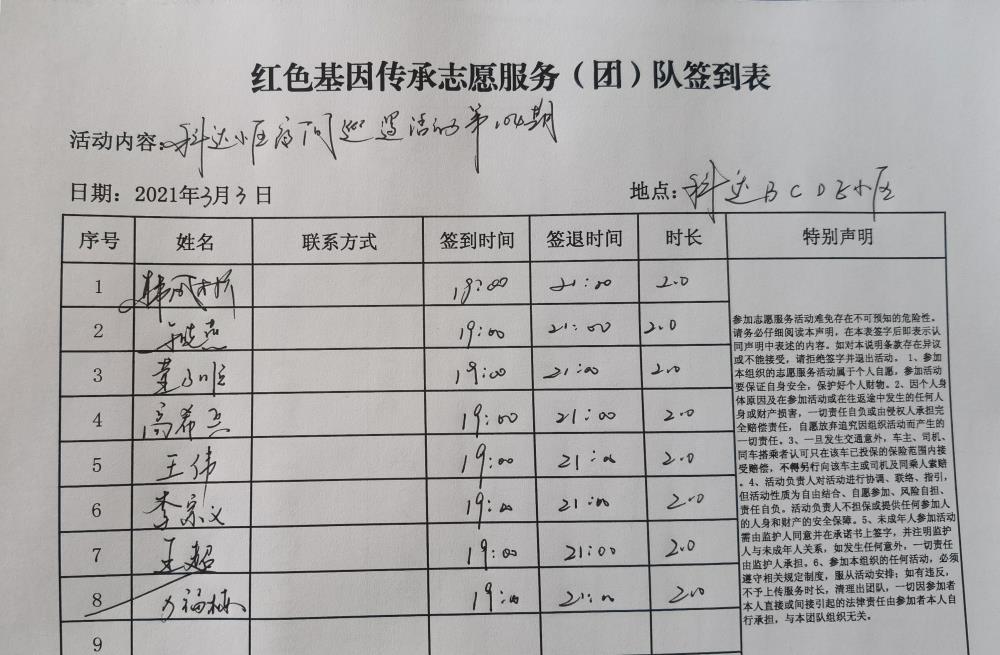 红色基因传承志愿服务（团）队签到表
活动内容：科达小区夜间巡逻活动第104期
日期：2021年3月3日 地点：科达BCDE小区
序号 姓名 联系方式 签到时间 签退时间 时长 特别声明
1 19:00 21:00 2.0
2 19:00 21:00 2.0
3 19:00 21:00 2.0
4 高希杰 19:00 21:00 2.0
5 王伟 19:00 21:00 2.0
6 李宗义 19:00 21:00 2.0
7 王超 19:00 21:00 2.0
8 19:00 21:00 2.0
9
参加志愿服务活动难免存在不可预知的危险性。
请务必仔细阅读本声明，在本表签字后即表示认
同声明中表述的内容。如对本说明条款存在异议
或不能接受，请拒绝签字并退出活动。 1、参加
本组织的志愿服务活动属于个人自愿，参加活动
要保证自身安全，保护好个人财物。2、因个人身
体原因及在参加活动或在往返途中发生的任何人
身或财产损害，一切责任自负或由侵权人承担完
全赔偿责任，自愿放弃追究因组织活动而产生的
一切责任。3、一旦发生交通意外，车主、司机、
同车搭乘者认可只在该车已投保的保险范围内接
受赔偿，不得另行向该车主或司机及同乘人索赔
。4、活动负责人对活动进行协调、联络、指引，
但活动性质为自由结合、自愿参加、风险自担、
责任自负。活动负责人不担保或提供任何参加人
的人身和财产的安全保障。5、未成年人参加活动
需由监护人同意并在承诺书上签字，并注明监护
人与未成年人关系，如发生任何意外，一切责任
由监护人承担。6、参加本组织的任何活动，必须
遵守相关规定制度，服从活动安排；如有违反，
不予上传服务时长，清理出团队，一切因参加者
本人直接或间接引起的法律责任由参加者本人自
行承担，与本团队组织无关。